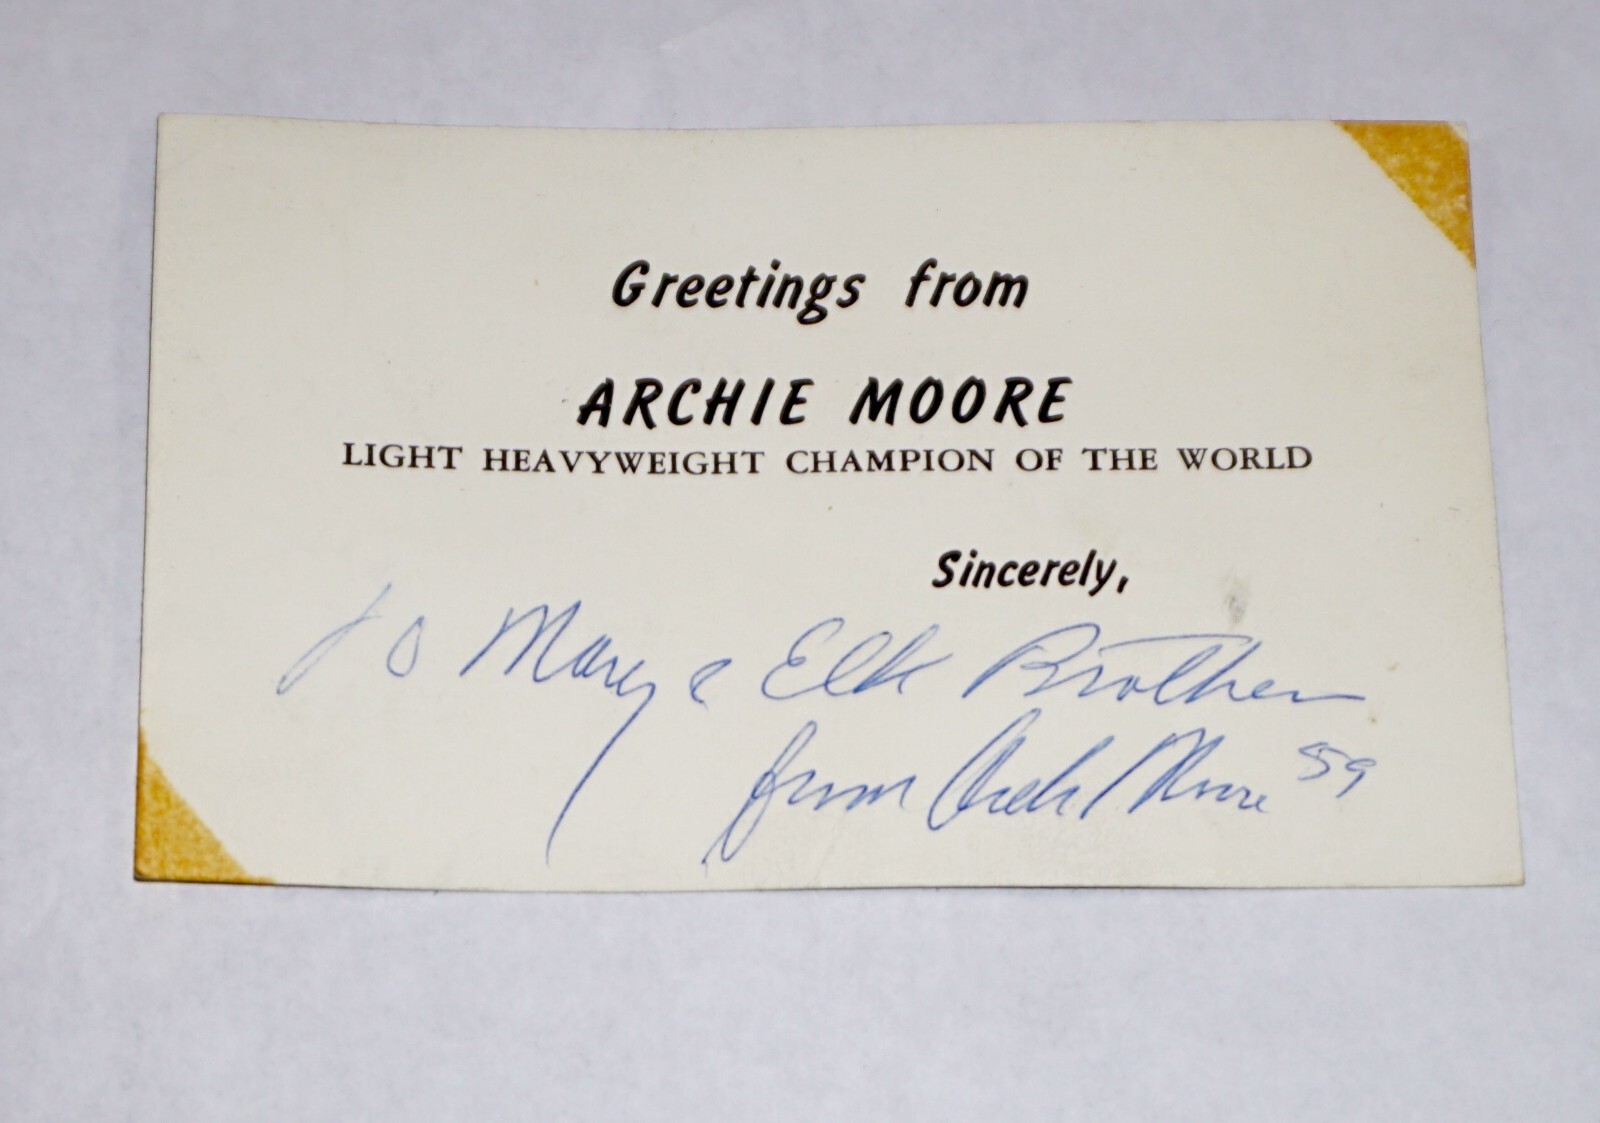 Greetings from
ARCHIE MOORE
LIGHT HEAVYWEIGHT CHAMPION OF THE WORLD
Sincerely,
To Mary & Elk Brother
from Archie Moore 59